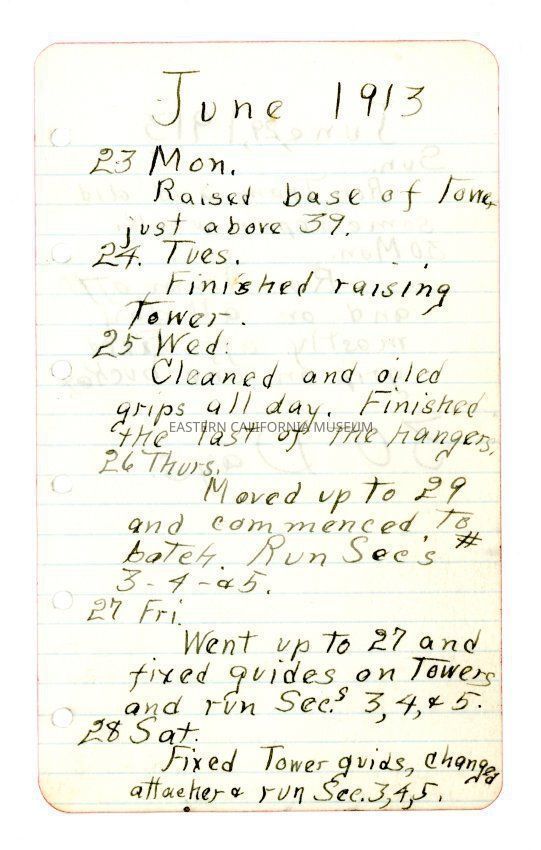 June 1913
23 Mon.
Raised base of Tower
just above 39.
24. Tues.
Finished raising
Tower.
25 Wed.
Cleaned and oiled
grips all day. Finished
the last of the hangers.
EASTERN CALIFORNIA MUSEUM
26 Thurs.
Moved up to 29
and commenced to
batch. Run Sec's #
3-4-&5.
27 Fri.
Went up to 27 and
fixed guides on Towers
and run Sec.s 3,4,& 5.
28 Sat.
Fixed Tower guids, changed
attacher & run Sec. 3,4,5.